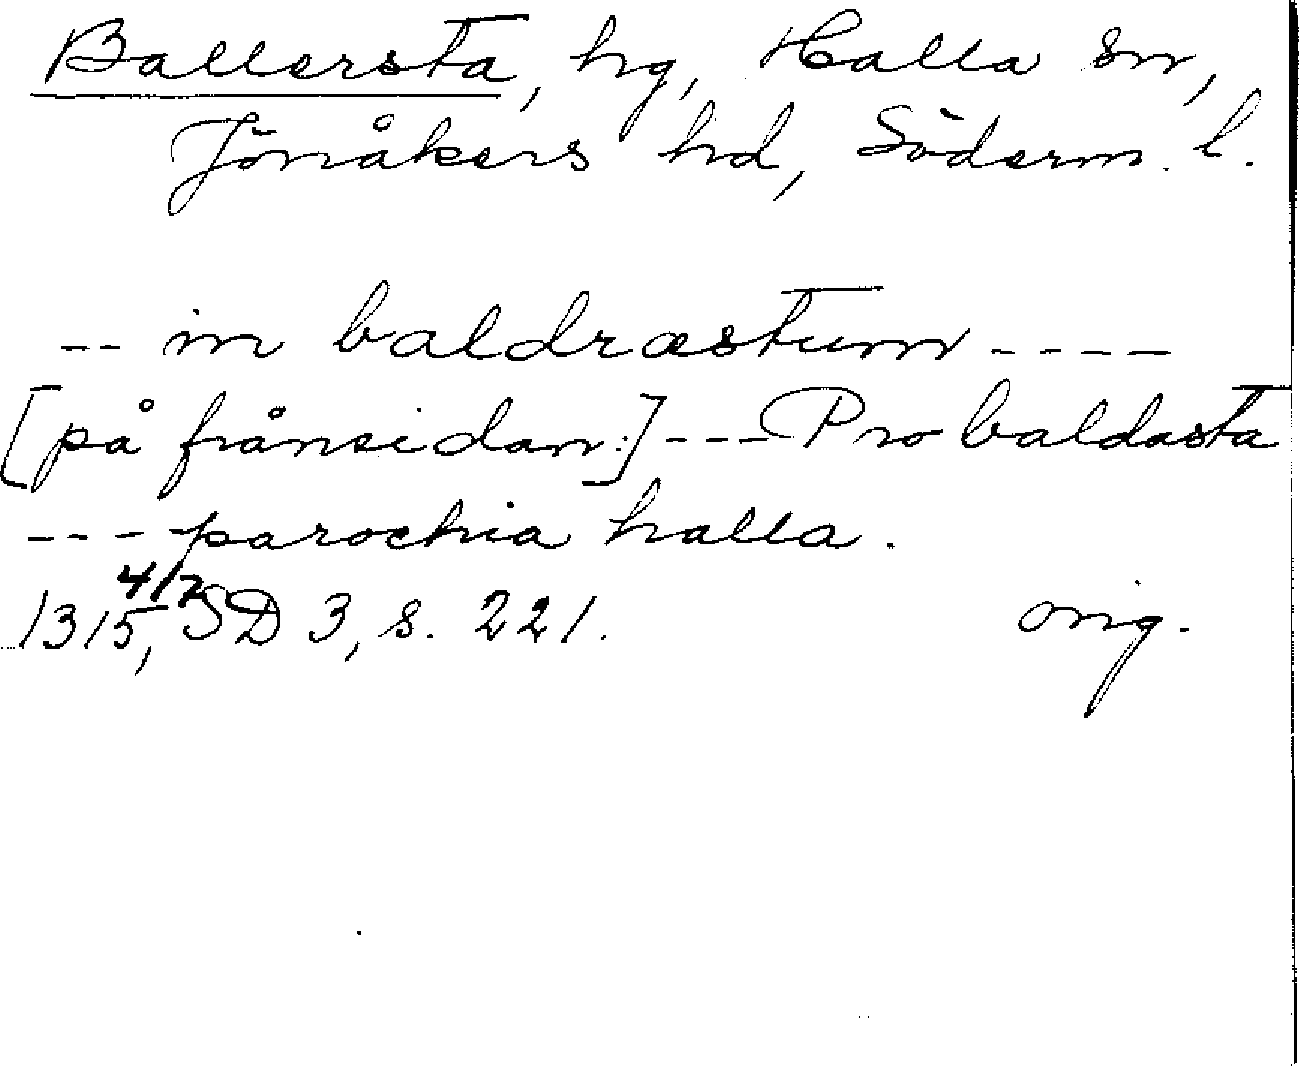 Ballersta, hg, Halla sn,
Jönåkers hd, Söderm. l.
-- in baldræstum ----
[på frånsidan:] --- Pro baldasta
--- parochia halla.
1315 4/7, SD 3, s. 221. orig.